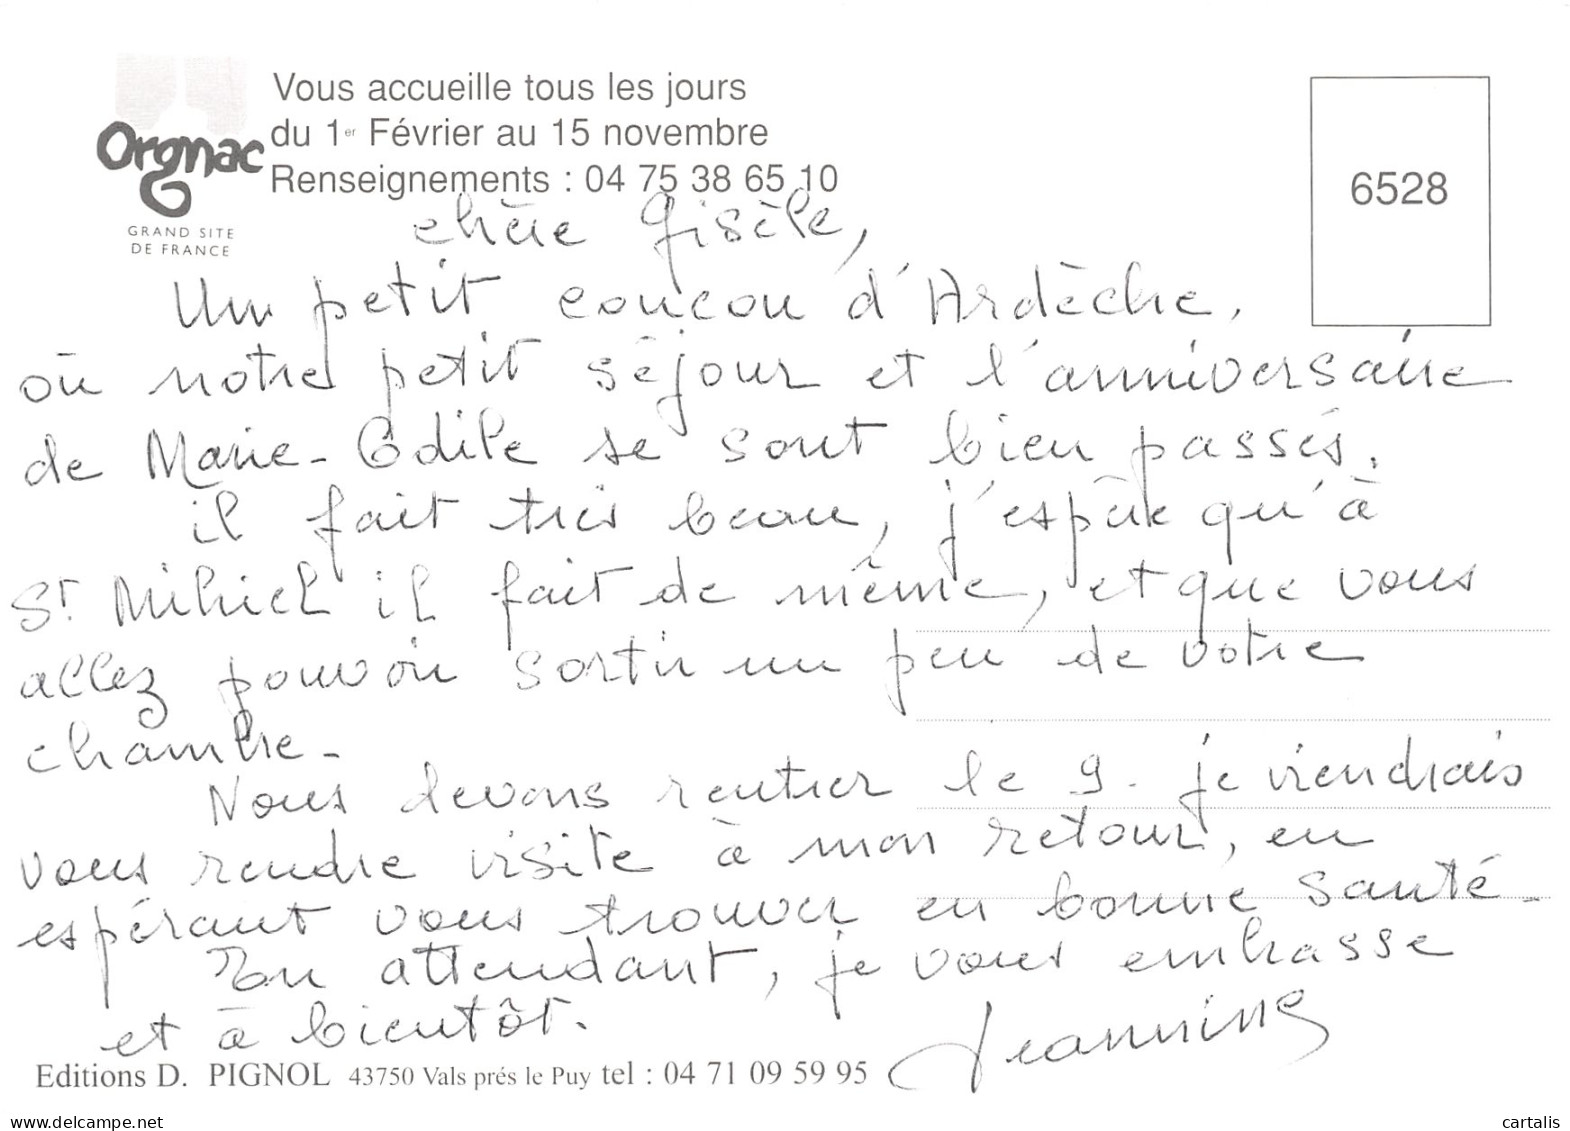 Vous accueille tous les jours
du 1er Février au 15 novembre
Renseignements : 04 75 38 65 10
Orgnac
GRAND SITE
DE FRANCE
6528
chère Gisèle,
Un petit coucou d'Ardèche,
où notre petit séjour et l'anniversaire
de Marie-Odile se sont bien passés.
il fait très beau, j'espère qu'à
St Mihiel il fait de même, et que vous
allez pouvoir sortir un peu de votre
chambre.
Nous devons rentrer le 9. je viendrais
vous rendre visite à mon retour, en
espérant vous trouver en bonne santé.
En attendant, je vous embrasse
et à bientôt.
Jeannine
Editions D. PIGNOL 43750 Vals prés le Puy tel : 04 71 09 59 95
www.delcampe.net
cartalis